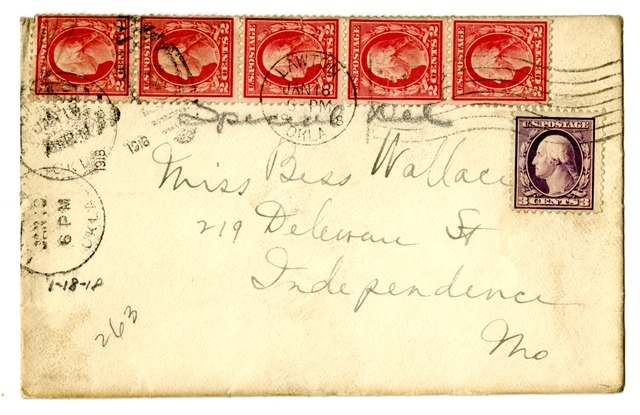 U.S. POSTAGE 2 CENTS 2
U.S. POSTAGE 2 CENTS 2
U.S. POSTAGE 2 CENTS 2
U.S. POSTAGE 2 CENTS 2
U.S. POSTAGE 2 CENTS 2
LAWTON
JAN 18
6-PM
OKLA
1918
1918
Special Del
U.S. POSTAGE
3 CENTS 3
Miss Bess Wallace
219 Deleware St
Independence
Mo
JAN 18
6 PM
OKLA
1-18-18
263